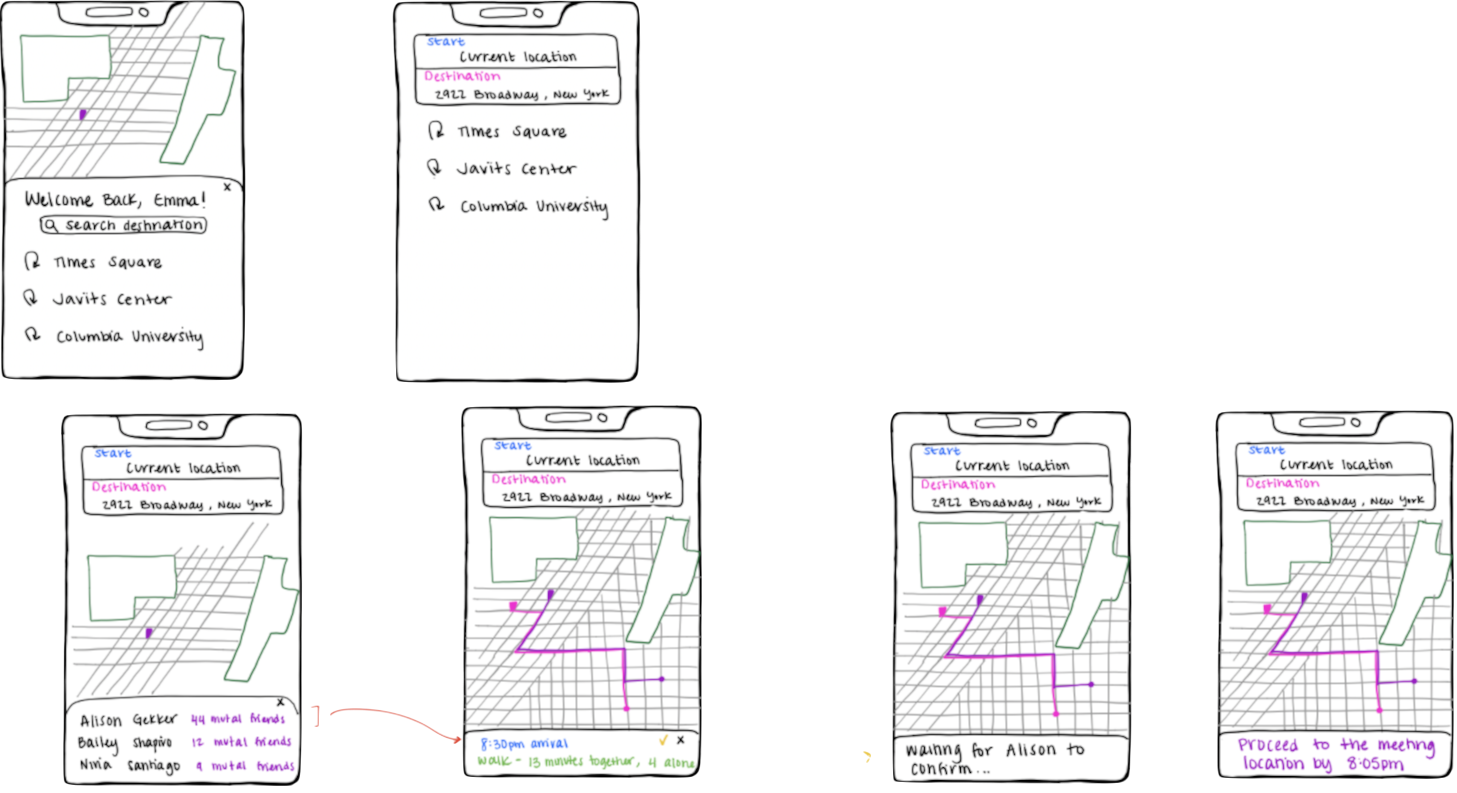 Welcome Back, Emma!
x
search destination
Times Square
Javits Center
Columbia University
Start
Current location
Destination
2922 Broadway, New York
Times Square
Javits Center
Columbia University
Start
Current location
Destination
2922 Broadway, New York
x
Alison Gekker 44 mutal friends
Bailey Shapiro 12 mutal friends
Nina Santiago 9 mutal friends
Start
Current location
Destination
2922 Broadway, New York
8:30pm arrival ✓ x
walk - 13 minutes together, 4 alone
Start
Current location
Destination
2922 Broadway, New York
waiting for Alison to
confirm...
Start
Current location
Destination
2922 Broadway, New York
Proceed to the meeting
location by 8:05pm